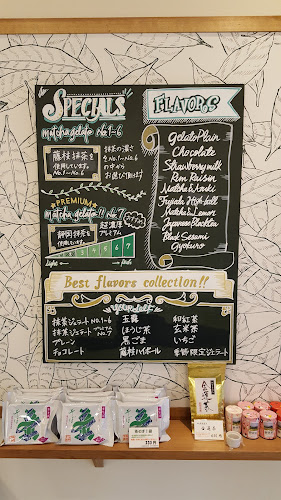 SPECIALS
matcha gelato No.1-6
藤枝抹茶を
使用しています。
No.1~No.6
抹茶の濃さ
No.1~No.6
の中から
お選び頂けます
PREMIUM
matcha gelato!! No.7
静岡抹茶を
使用しています
超濃厚
プレミアム
1 2 3 4 5 6 7
Light
Rich
FLAVORS
Gelato Plain
Chocolate
Strawberry milk
Rum Raisin
Matcha & Azuki
Fujieda High Ball
Matcha & Lemon
Japanese Blacktea
Black Sesami
Gyokuro
Best flavors collection!!
抹茶ジェラート No.1-6
抹茶ジェラート プレミアム No.7
プレーン
チョコレート
玉露
ほうじ茶
黒ごま
藤枝ハイボール
和紅茶
玄米茶
いちご
季節限定ジェラート